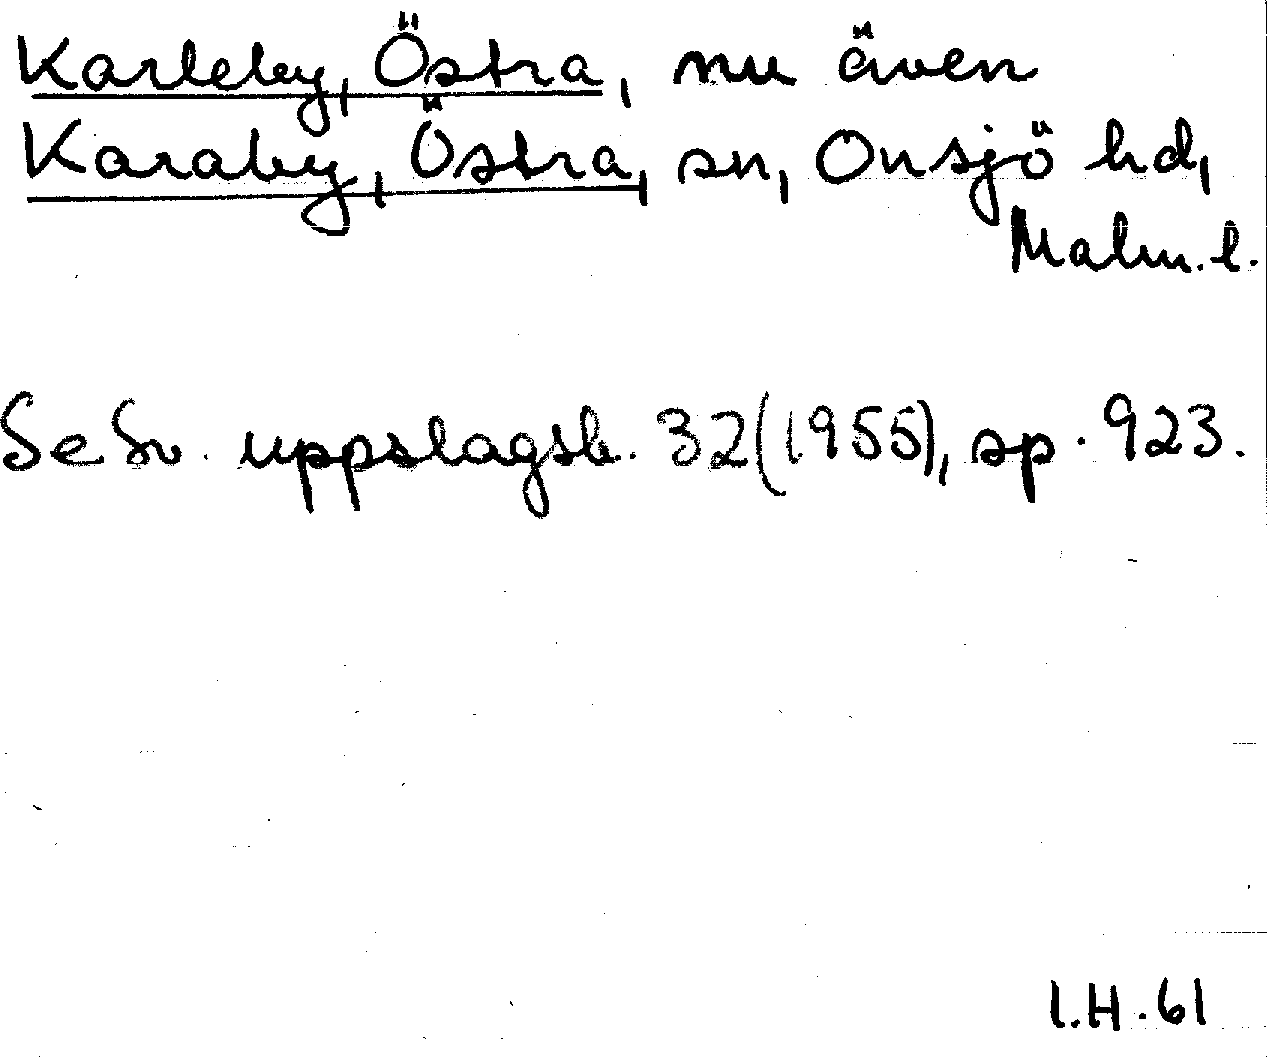 Karleby, Östra, nu även
Karaby, Östra, sn, Onsjö hd,
Malm. l.
Se Sv. uppslagsb. 32(1955), sp. 923.
I.H. 61